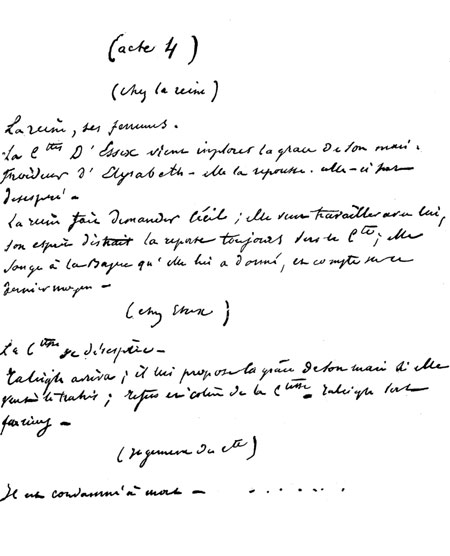 (acte 4)
(chez la reine)
La reine, ses femmes.
La C^tesse D'Essex vient implorer la grâce de son mari.
froideur d'Elysabeth - elle la repousse. elle-ci sort
desespéré -
La reine fait demander Cécil ; elle veut travailler avec lui,
son esprit distrait la reporte toujours vers le C^te ; elle
songe à la Bague qu'elle lui a donné, et compte sur ce
dernier moyen -
(chez Essex)
La C^tesse se désespère -
Raleigh arriva ; il lui propose la grâce de son mari si elle
veut le trahir ; refus et colère de la C^tesse - Raleigh sort
furieux -
(Jugement du c^te)
Il est condamné à mort - . . . . . .